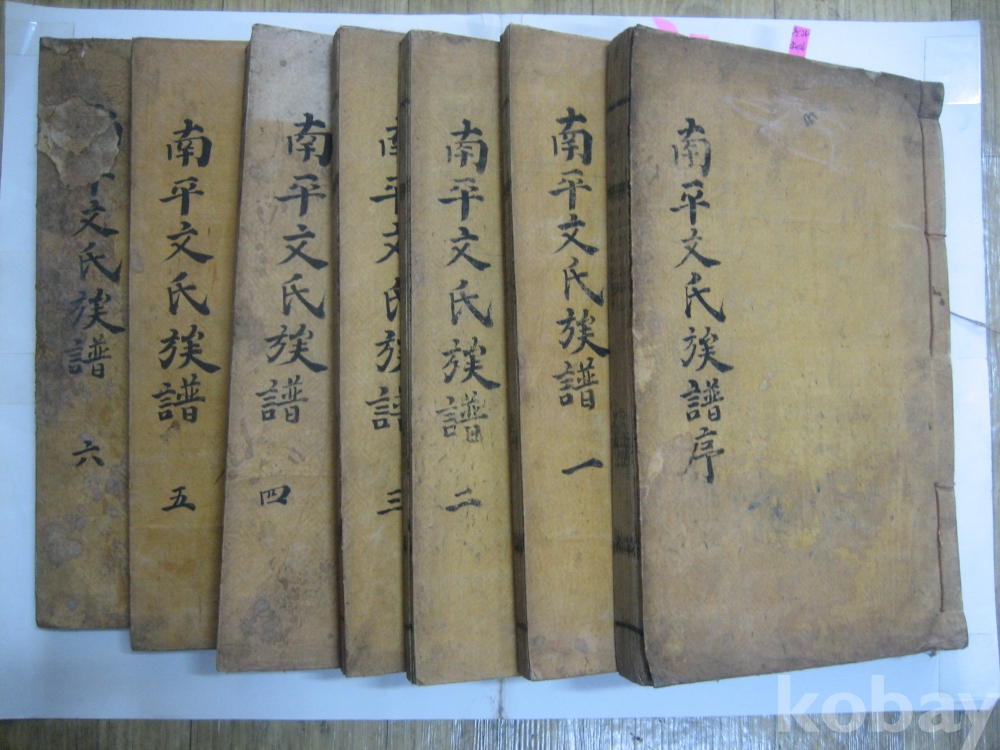 南平文氏族譜序
南平文氏族譜 一
南平文氏族譜 二
南平文氏族譜 三
南平文氏族譜 四
南平文氏族譜 五
平文氏族譜 六
kobay